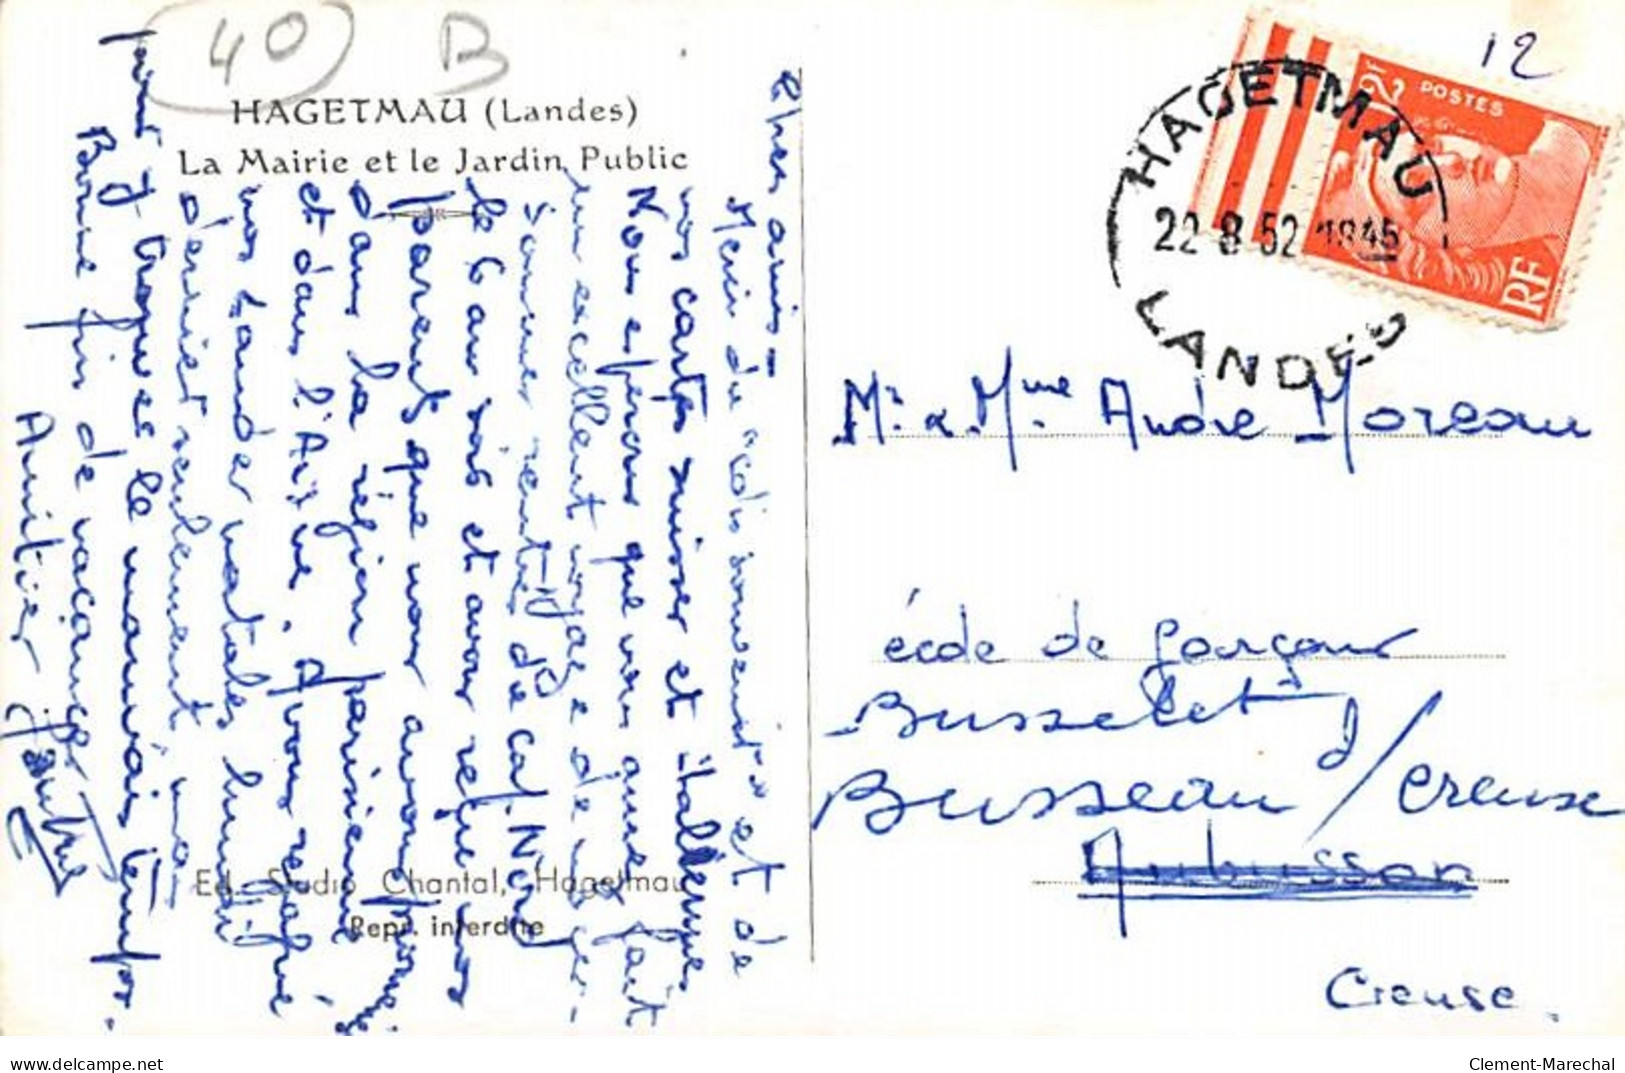 40 B
HAGETMAU (Landes)
La Mairie et le Jardin Public
12
12F
POSTES
RF
HAGETMAU
22-8 52 1845
LANDES
Chers amis -
Merci du "colis souvenir" et de
vos cartes suisses et italiennes
Nous espérons que vous avez fait
un excellent voyage de
Sommes rentrés de
le 6 au soir et avons reçu nos
parents que nous avons
dans la région parisienne
et dans l'Aisne. Avons regagné
nos Landes natales lundi
dernier seulement, nos
point J. troque le mauvais temps.
Bonne fin de vacances
Amitiés
Mr. & Mme. André Moreau
école de garçons
Busseau / Creuse
Aubusson
Creuse.
Ed. Studio Chantal, Hagetmau
Repr. interdite
delcampe.net
Clement-Marechal